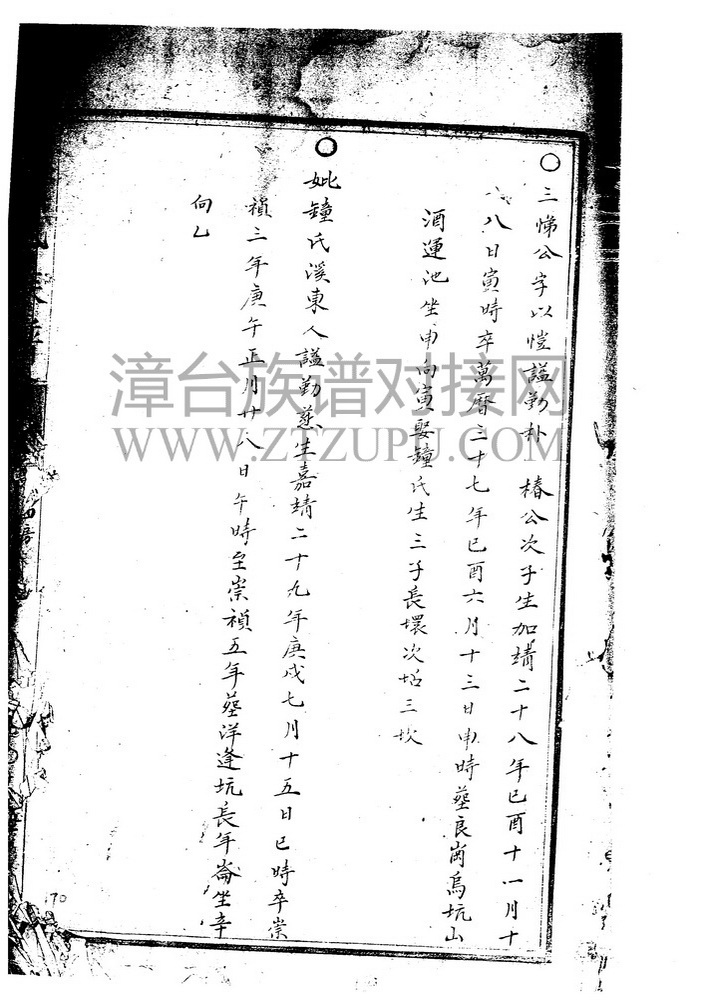 三悌公字以愷謚勤朴 椿公次子生加靖二十八年巳酉十一月十
八日寅時卒萬曆三十七年巳酉六月十三日申時塟良崗烏坑山
酒運池坐申向寅娶鐘氏生三子長壞次坫三坎
妣鐘氏溪東人謚勤慈生嘉靖二十九年庚戍七月十五日巳時卒崇
禎三年庚午正月廿八日午時至崇禎五年塟洋逢坑長年崙坐辛
向乙
漳台族谱对接网
WWW.ZTZUPU.COM
170